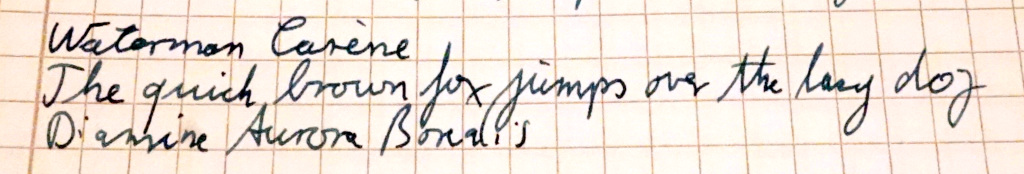 Waterman Carène
The quick brown fox jumps over the lazy dog
Diamine Aurora Borealis